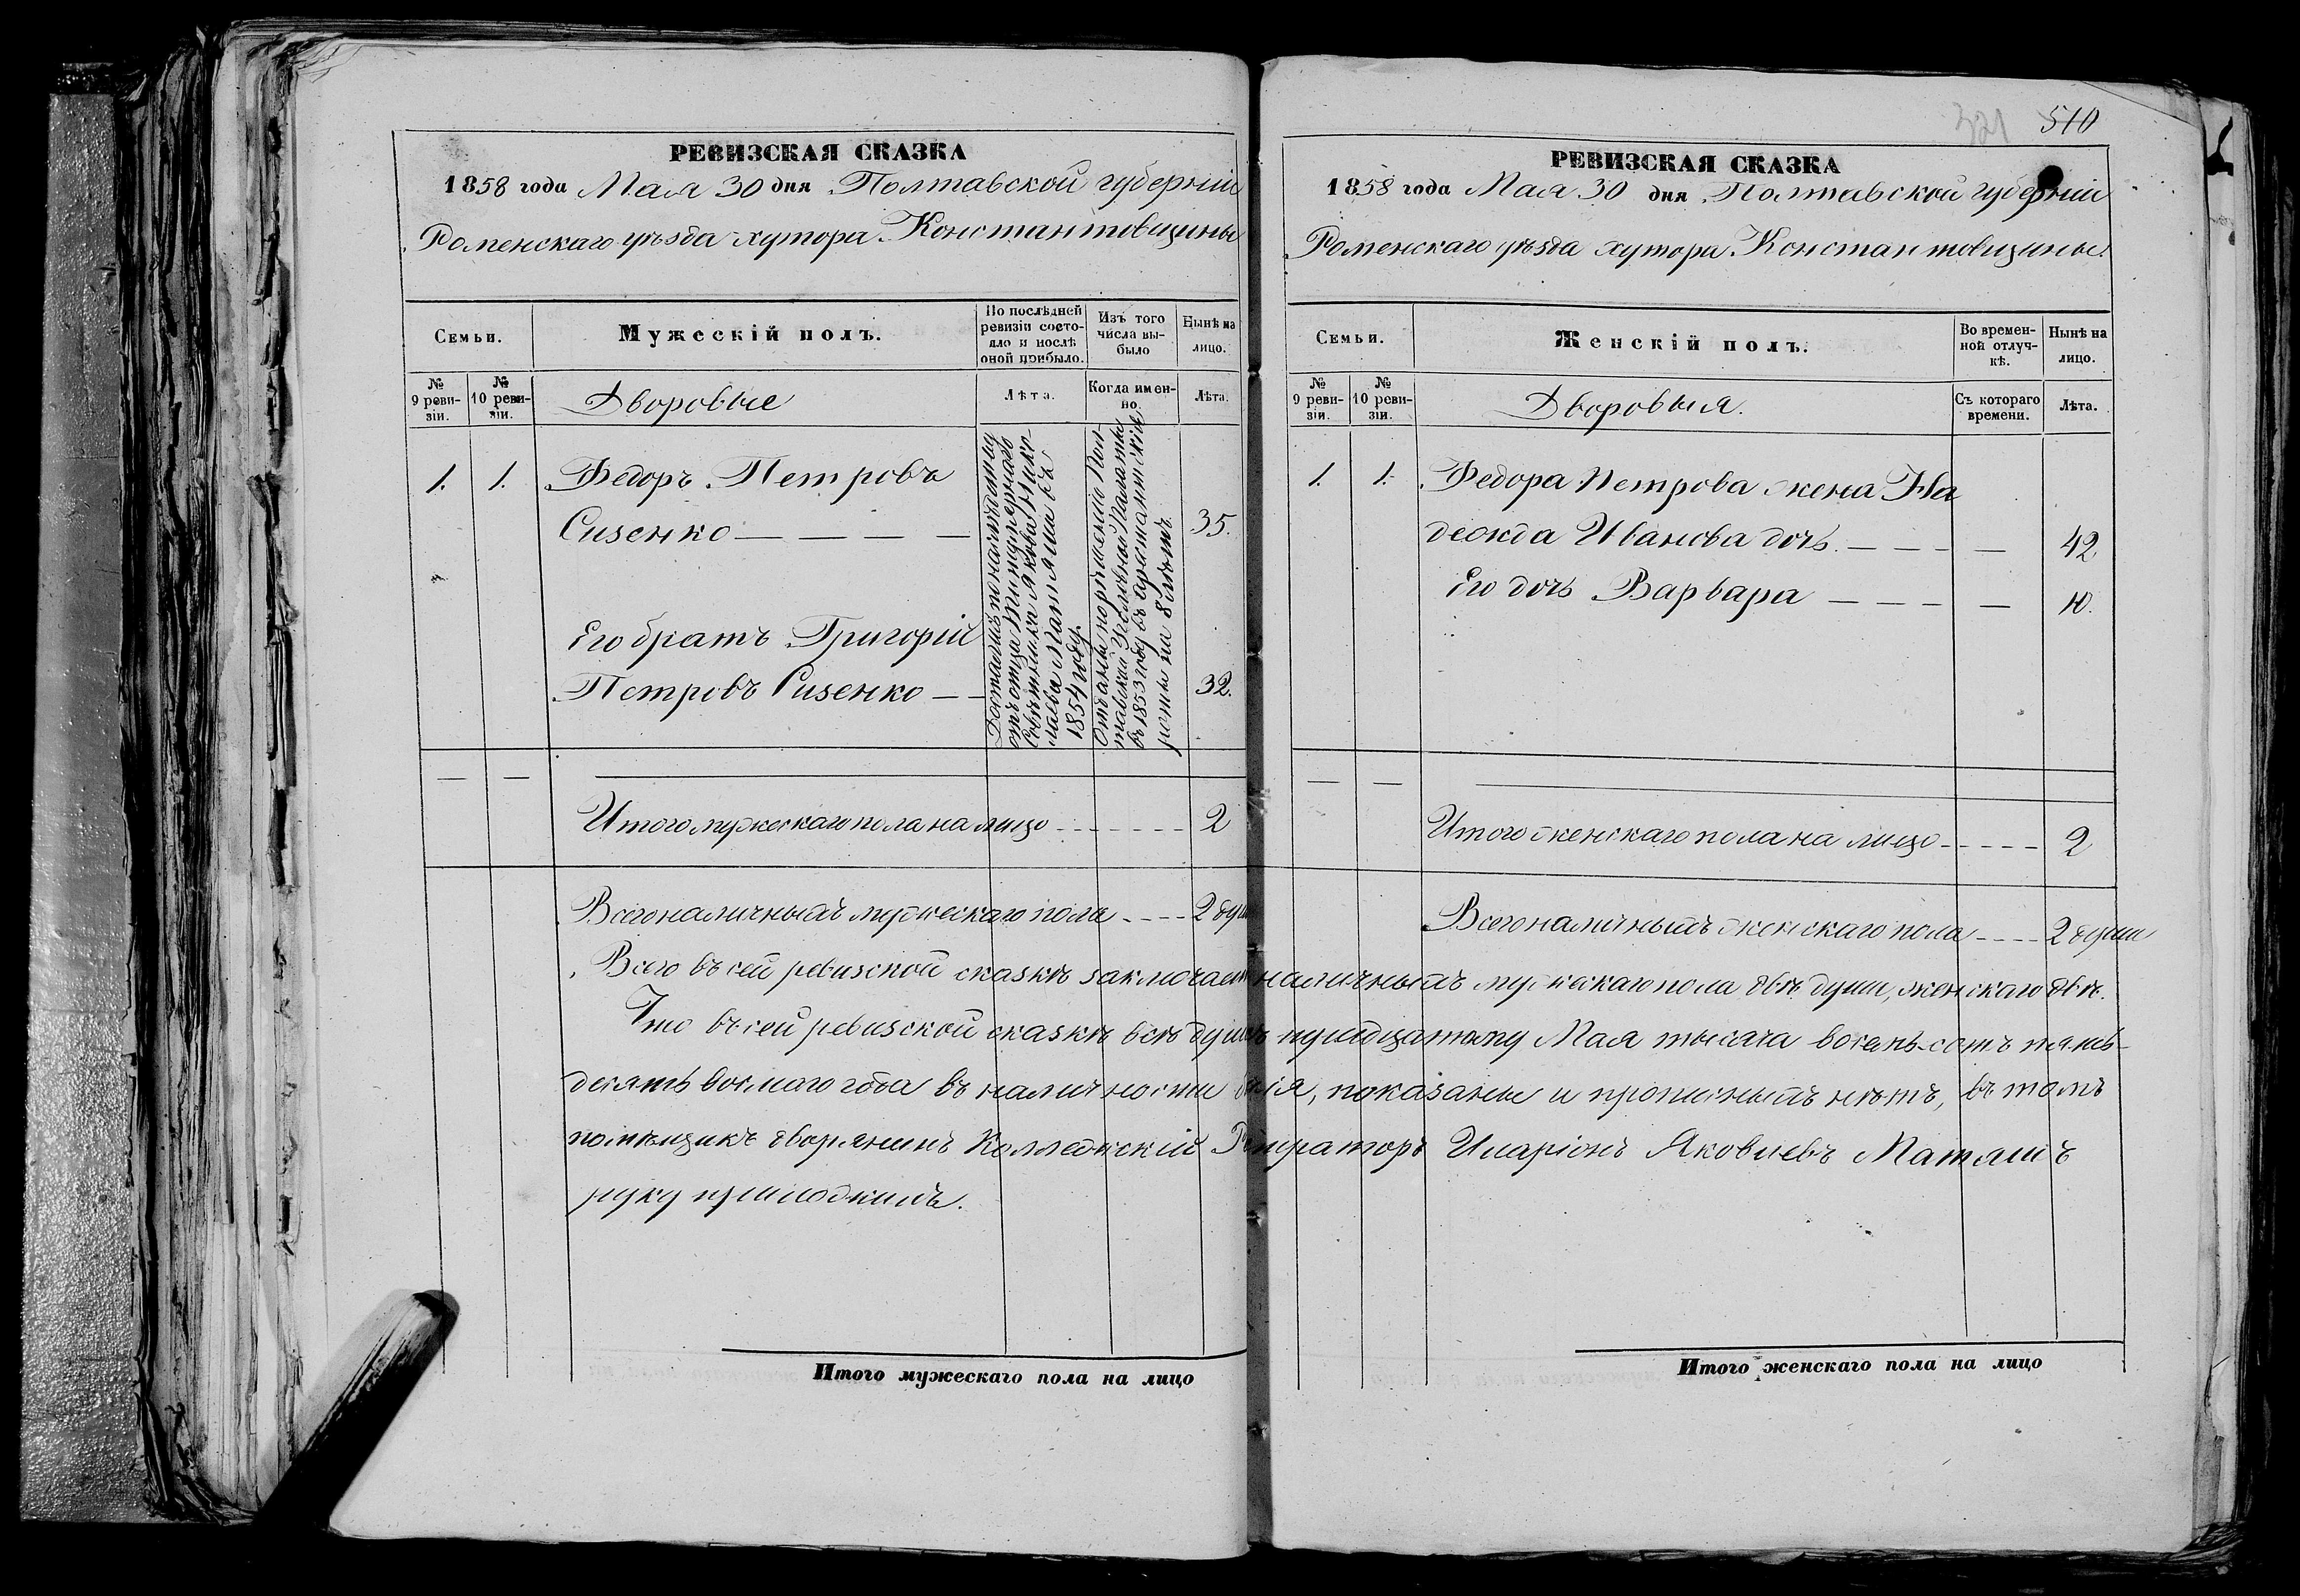 РЕВИЗСКАЯ СКАЗКА
1858 года Мая 30 дня Полтавской губерніи
Роменскаго уѣзда хутора Константовщины
Семьи.
Мужескій полъ.
По послѣдней ревизіи состояло и послѣ оной прибыло.
Изъ того числа выбыло
Нынѣ на лицо.
№ 9 ревизіи.
№ 10 ревизіи.
Дворовые
Лѣта.
Когда именно.
Лѣта.
1. 1. Федоръ Петровъ
Сизенко — — — — 35.
Его братъ Григорій
Петровъ Сизенко — — 32.
Достались по наслѣдству
отъ отца Титулярнаго
Совѣтника Якова Нико-
лаева Матяша въ
1854 году.
Отданъ по рѣшенію Пол-
тавской Уголовной Палаты
въ 1853 году въ арестантскіе
роты на 8 лѣтъ.
Итого мужескаго пола на лицо - - - - - - - 2
Всего наличныхъ мужескаго пола - - - - 2 души
РЕВИЗСКАЯ СКАЗКА
321 510
1858 года Мая 30 дня Полтавской губерніи
Роменскаго уѣзда хутора Константовщины.
Семьи.
Женскій полъ.
Во временной отлучкѣ.
Нынѣ на лицо.
№ 9 ревизіи.
№ 10 ревизіи.
Дворовыя.
Съ котораго времени.
Лѣта.
1. 1. Федора Петрова жена На
дежда Иванова дочь. — — — — 42
Его дочь Варвара — — — — 10.
Итого женскаго пола на лицо - - - - - 2
Всего наличныхъ женскаго пола - - - - 2 души
Всего въ сей ревизской сказкѣ заключает наличныхъ мужескаго пола двѣ души, женскаго двѣ.
Что въ сей ревизской сказкѣ всѣ души къ тридцатому Мая тысяча восемь-сотъ пять-
десятъ восьмаго года въ наличности бывшія, показаны и прописныхъ нѣтъ, въ томъ
помѣщикъ дворянинъ Коллежскій Регистраторъ Иларіонъ Яковлевъ Матяшъ
руку приложилъ.
Итого мужескаго пола на лицо
Итого женскаго пола на лицо